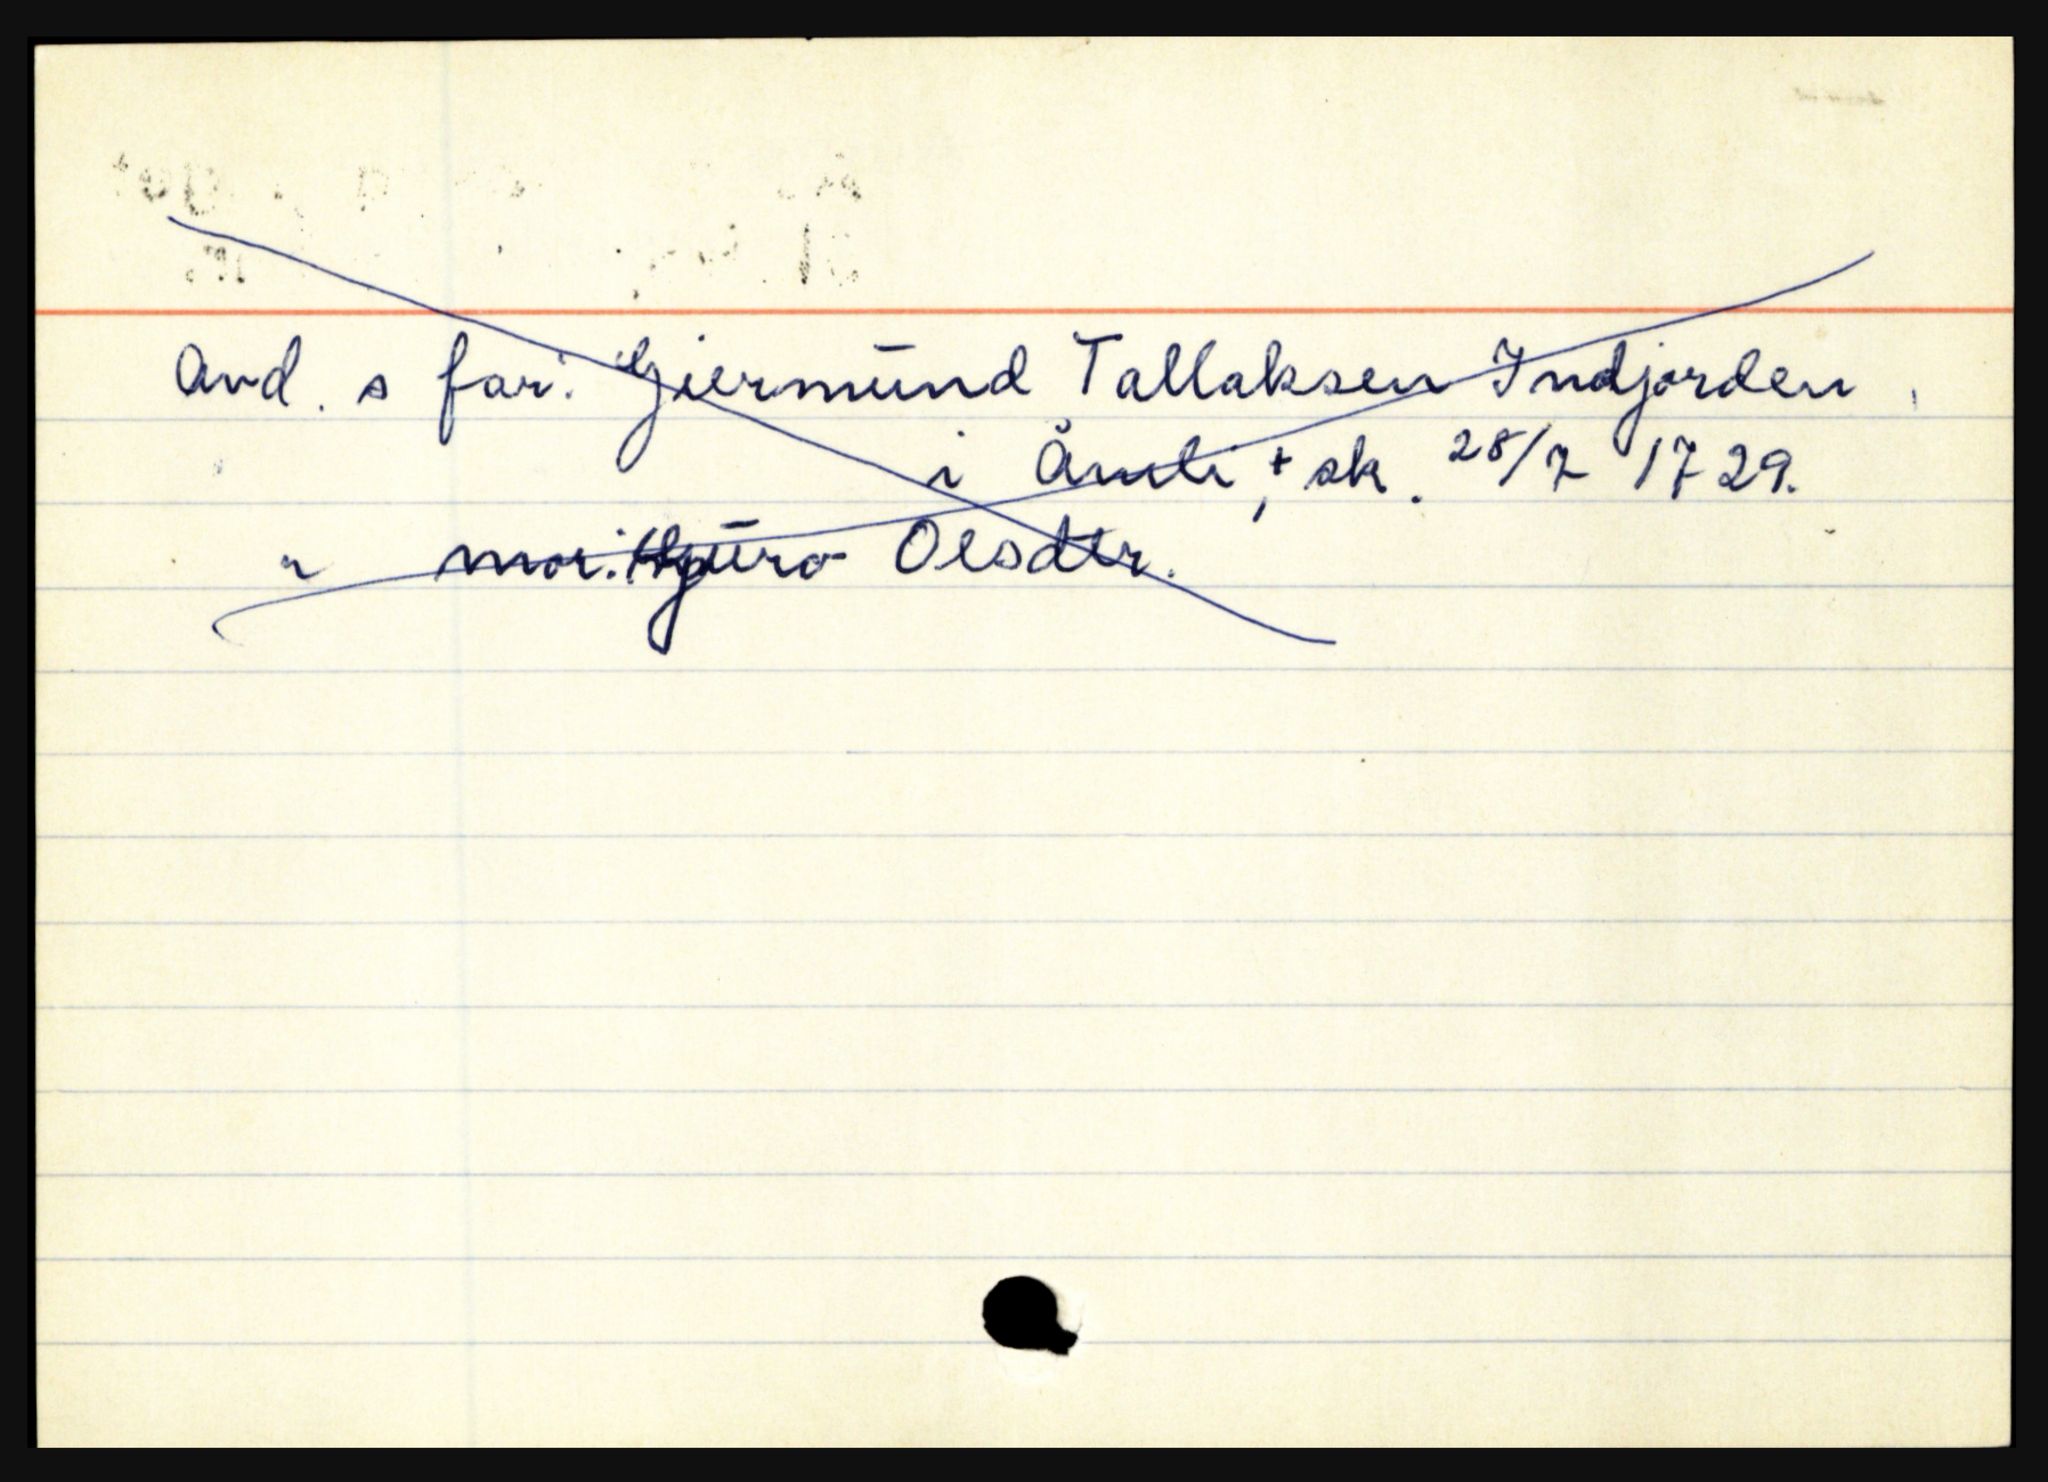 Avd. s far: Gjermūnd Tallaksen Indjorden,
i Åmli, + sk. 28/7 1729.
" mor: Gūro Olsdtr.